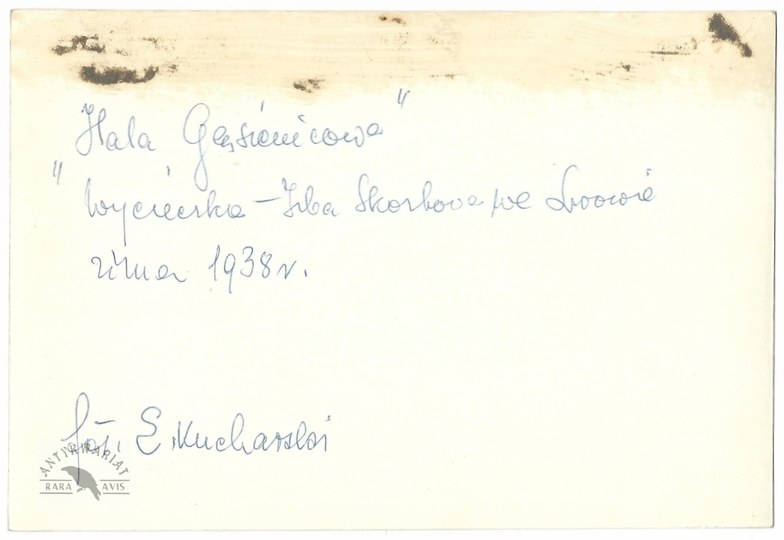 "Hala Gąsienicowa"
Wycieczka – Izba Skarbowa we Lwowie
zima 1938 r.
fot. E. Kucharski
ANTYKWARIAT
RARA AVIS